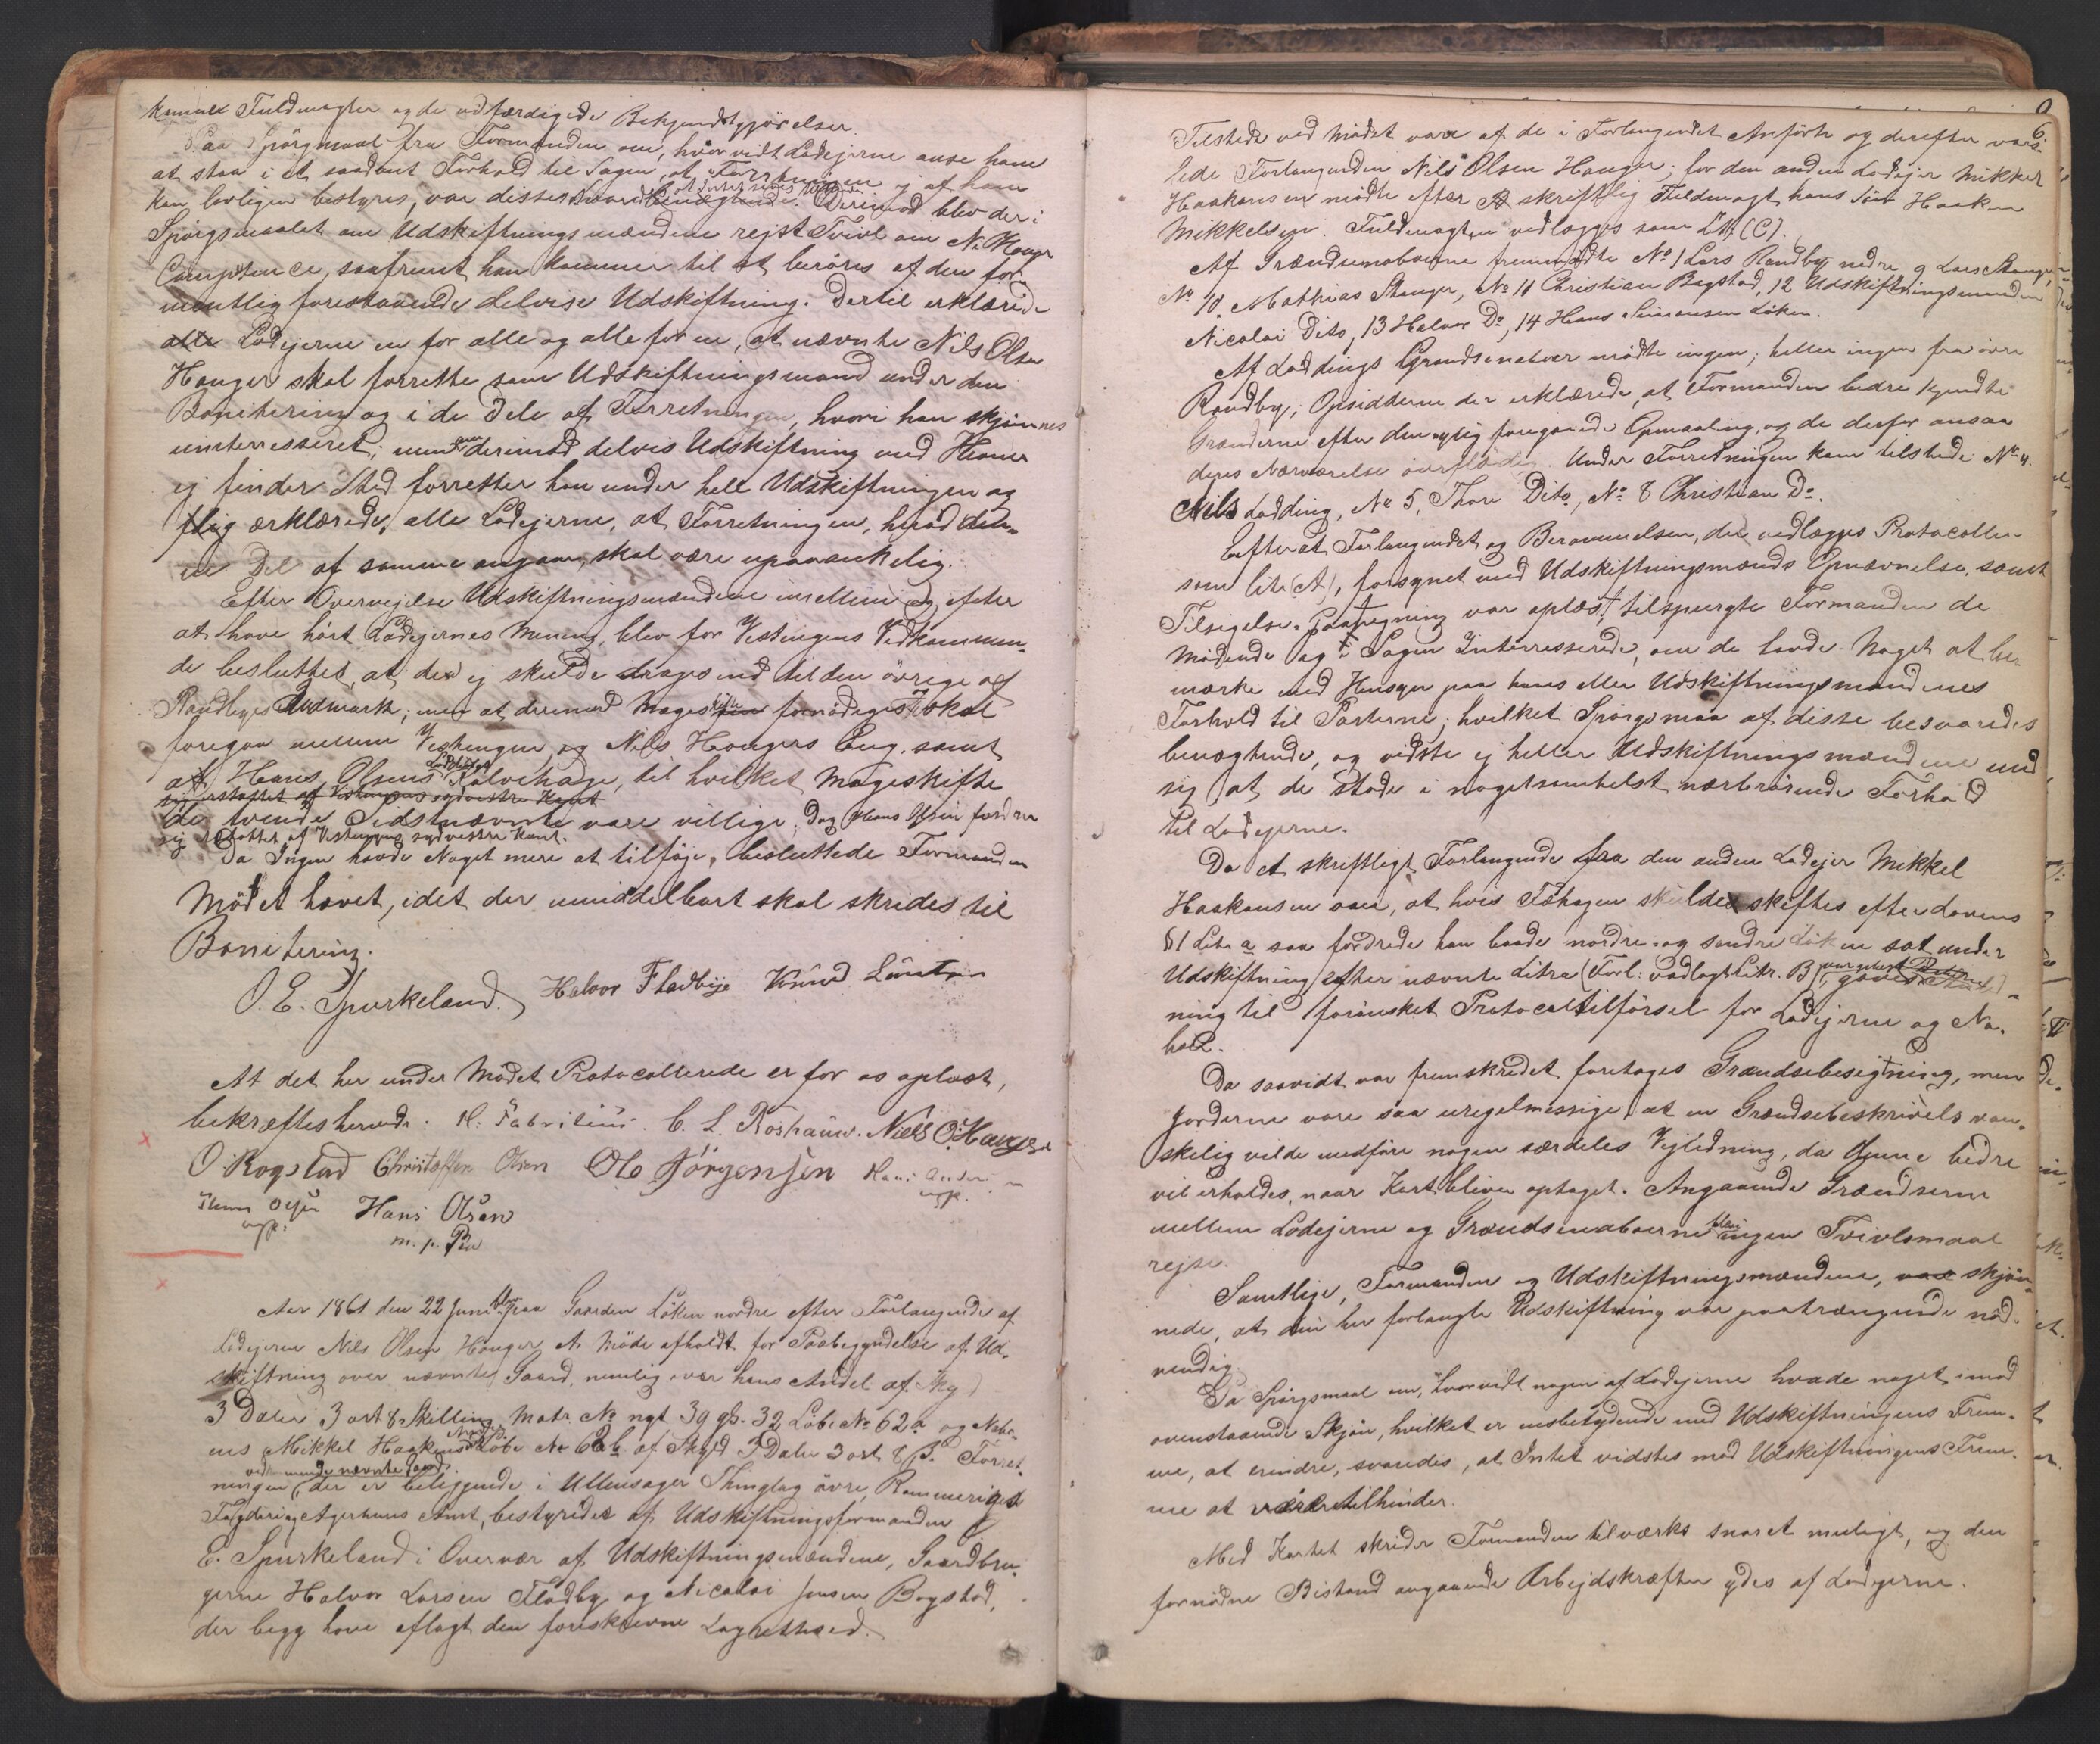 komne Fuldmagter og de udfærdigede Bekjendtgjørelser.
Paa Spörgsmaal fra Formanden om, hvorvidt Lodejerne anse ham
at staa i et saadant Forhold til Sagen, at Forretningen ej af ham
kan lovligen bestyres, var disses Svar benægtende. Derimod blev der i
Spörgsmaalet om Udskiftningsmændene rejst Tvivl om N. Hauger
Competence, saafremt han kommer til at beröres af den for-
mentlig forestaaende delvise Udskiftning. Dertil erklærede
alle Lodejerne en for alle og alle for en, at nævnte Nils Olsen
Hauger skal forrette som Udskiftningsmand under den
Bonitering og i de Dele af Forretningen, hvori han skjönnes
uinteresseret; men derimod delvis Udskiftning med Hauer
ej finder Sted forretter han under hele Udskiftningen og
erklærede, alle Lodejerne, at Forretningen, hvad den-
ne Del af samme angaar, skal være upaaankelig.
Efter Overvejelse Udskiftningsmændene imellem og efter
at have hört Lodejernes Mening, blev for Vestengens Vedkommen-
de besluttet, at den ej skulde drages ind til den övrige af
Randbyes Indmark; men at derimod Mageskifte fornödiges skal
foregaa mellem Vestengen, og Nils Haugers Eng, samt
af Hans Olsens Kalvehage, til hvilket Mageskifte
de tvende Sidstnævnte vare villige, dog Hans Olsen fordrer
sig erstattet af Vestengens sydvestre Kant.
Da Ingen havde Noget mere at tilföje, besluttede Formanden
Mödet hævet, idet der umiddelbart skal skrides til
Bonitering.
O. E. Spurkeland. Halvor Fladbye Knud
At det her under Mödet Protocollerede er for os oplæst,
bekræftes herved: H. Fabritius. C. L. Roshauw. Niels O. Hauger
O Rogstad Christoffer Olsen Ole Jörgensen Hans Anders
mp.
Olsen Hans Olsen
mp. m. p. P
Aar 1861 den 22 Juni blev paa Gaarden Löken nordre efter Forlangende af
Lodejeren Nils Olsen Hauger et Möde afholdt for Paabegyndelse af Ud-
skiftning over nævnte Gaard, nemlig over hans Andel af Skyld
3 Daler 3 ort 8 Skilling Matr. No nyt 39 gl. 32 Löbe No 62a og Nabo-
ens Mikkel Haakensens Löbe No 62b af Skyld 3 Daler 3 ort 8 S. Forret-
ningen, der er beliggende i Ullensager Thinglag övre Romeriges
Fogderi og Agerhuus Amt, bestyredes af Udskiftningsformanden
E. Spurkeland i Overvær af Udskiftningsmændene, Gaardbru-
gerne Halvor Larsen Fladby og Nicolai Jensen Bogstad,
der begge have aflagt den foreskrevne Lagrettesed.
6.
Tilstede ved Mödet vare af de i Forlangendet Anförte og derefter vars-
lede Forlangenden Nils Olsen Hauger; for den anden Lodejer Mikkel
Haakensen mödte efter skriftlig Fuldmagt hans Sön Haaken
Mikkelsen. Fuldmagten vedlægges som Ltr. (C).
Af Grændsenaboerne fremmödte No 1 Lars Randby nedre, 9 Lars Stanger,
No 10 Mathias Stanger, No 11 Christian Bogstad, 12 Udskiftningsmanden
Nicolai Dito, 13 Halvor Do, 14 Hans Simensen Löken.
Af Laddings Grændsenaboer mödte ingen; heller ingen fra övre
Randby; Opsidderne der erklærede, at Formanden bedre kjendte
Grænderne efter den nylig foregaaede Opmaaling, og de derfor ansaa
deres Nærværelse överflödig. Under Forretningen kom tilstede No 4.
Nils Ladding, No 5, Thore Dito, No 8 Christian Do.
Efterat Forlangendet og Berammelsen, der vedlægges Protocollen
som Litr (A), forsynet med Udskiftningsmænds Opnævnelse, samt
Tilsigelses Paategning var oplæst, tilspurgte Formanden de
Mödende og i Sagen Interesserede, om de havde Noget at be-
mærke med Hensyn paa hans eller Udskiftningsmændenes
Forhold til Parterne; hvilket Spörgsmaal af disse besvaredes
benægtende, og vidste ej heller Udskiftningsmændene med
sig at de stode i nogetsomhelst nærberörende Forhold
til Lodejerne.
Da et skriftligt Forlangende fra den anden Lodejer Mikkel
Haakansen var, at hvis Fæhagen skulde skiftes efter Lovens
§ 1 Litr a saa fordrede han baade nordre og söndre Löken sat under
Udskiftning efter nævnte Litra (Forl: vedlagt Litr. B)
ning til forönsket Protocoltilförsel for Lodejerne og Na-
boer.
Da saavidt var fremskredet foretoges Grændsebesigtning, men
Jorderne vare saa uregelmessige, at en Grændsebeskrivelse van-
skelig vilde medföre nogen særdeles Vejledning, da denne bedre
vil erholdes, naar Kart bliver optaget. Angaaende Grændserne
mellem Lodejerne og Grændsenaboerne blev ingen Tvivlsmaal
rejst.
Samtlige, Formanden og Udskiftningsmændene, skjön-
nede, at den her forlangte Udskiftning var paatrængende nöd-
vendig.
Paa Spörgsmaal om, hvorvidt nogen af Lodejerne havde noget imod
ovenstaaende Skjön, hvilket er ensbetydende med Udskiftningens Frem-
me, at erindre, svaredes, at Intet vidstes mod Udskiftningens Frem-
me at være tilhinder.
Med Kartet skrider Formanden tilværks snarest muligt, og den
fornödne Bistand angaaende Arbejdskræfter ydes af Lodejerne.